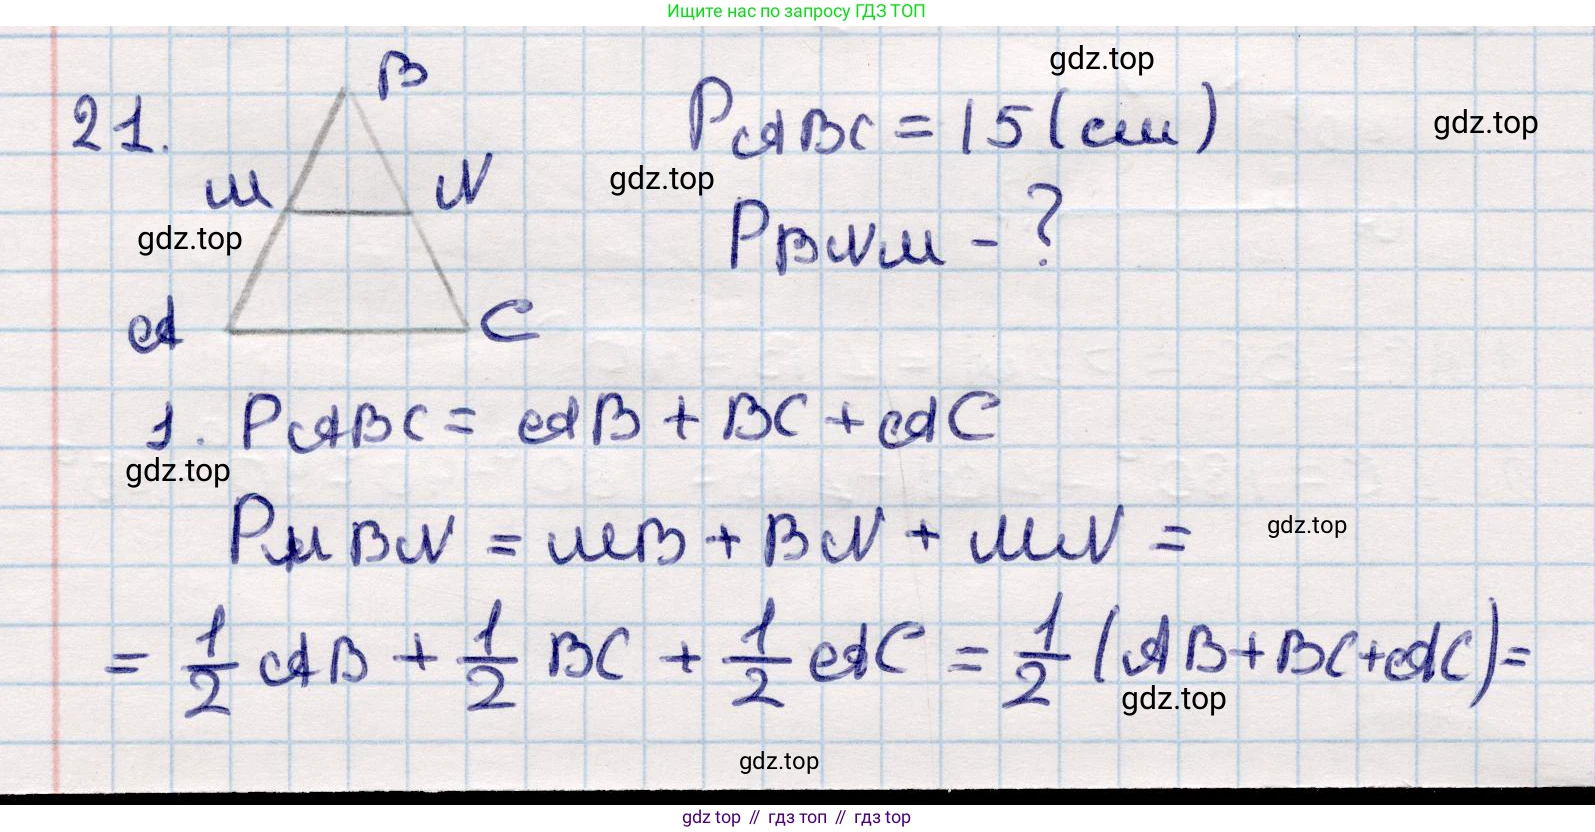 Ищите нас по запросу ГДЗ ТОП
21.
B
M
N
A
C
P ABC = 15 (см)
P BNM - ?
gdz.top
gdz.top
gdz.top
gdz.top
1. P ABC = AB + BC + AC
gdz.top
P MBN = MB + BN + MN =
gdz.top
= 1/2 AB + 1/2 BC + 1/2 AC = 1/2 (AB + BC + AC) =
gdz.top
gdz.top
gdz top // гдз топ // гдз top